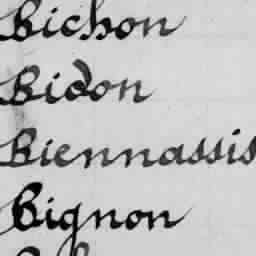 Bichon
Bidon
Biennassis
Bignon